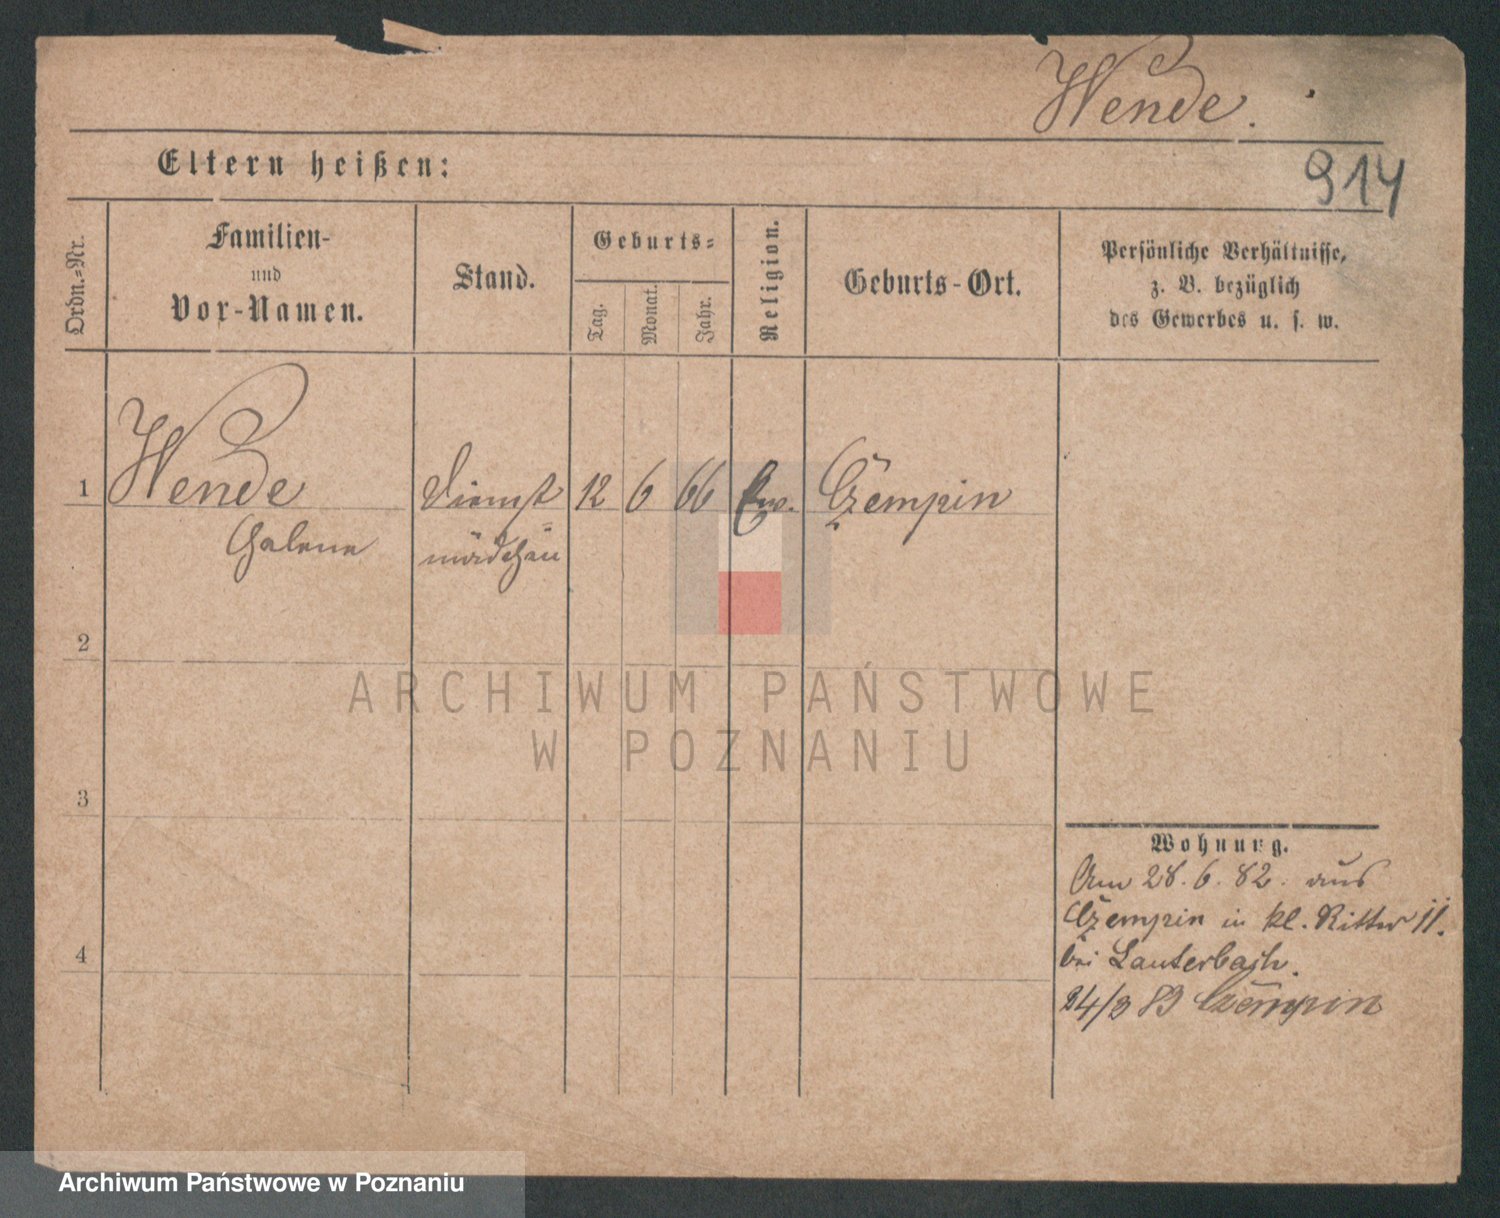 Wende.
914
Eltern heißen:
Ordn.=Nr.
Familien-
und
Vor-Namen.
Stand.
Geburts=
Tag.
Monat.
Jahr.
Religion.
Geburts-Ort.
Persönliche Verhältnisse,
z. B. bezüglich
des Gewerbes u. s. w.
1
Wende Dienst 12 6 66 Ev. Czempin
mädchen
2
ARCHIWUM PAŃSTWOWE
W POZNANIU
3
Wohnung.
Am 28. 6. 82. aus
Czempin in kl. Ritter 11.
bei Lauterbach.
24/3 83 Czempin
4
Archiwum Państwowe w Poznaniu